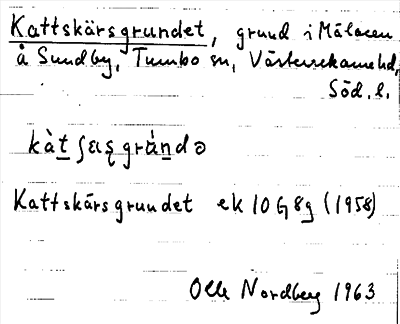 Kattskärsgrundet, grund i Mälaren
å Sundby, Tumbo sn, Västerrekarnehd,
Söd. l.
kàt ʃæʂ grànd ə
Kattskärsgrundet ek 10 G 8g (1958)
Olle Nordberg 1963